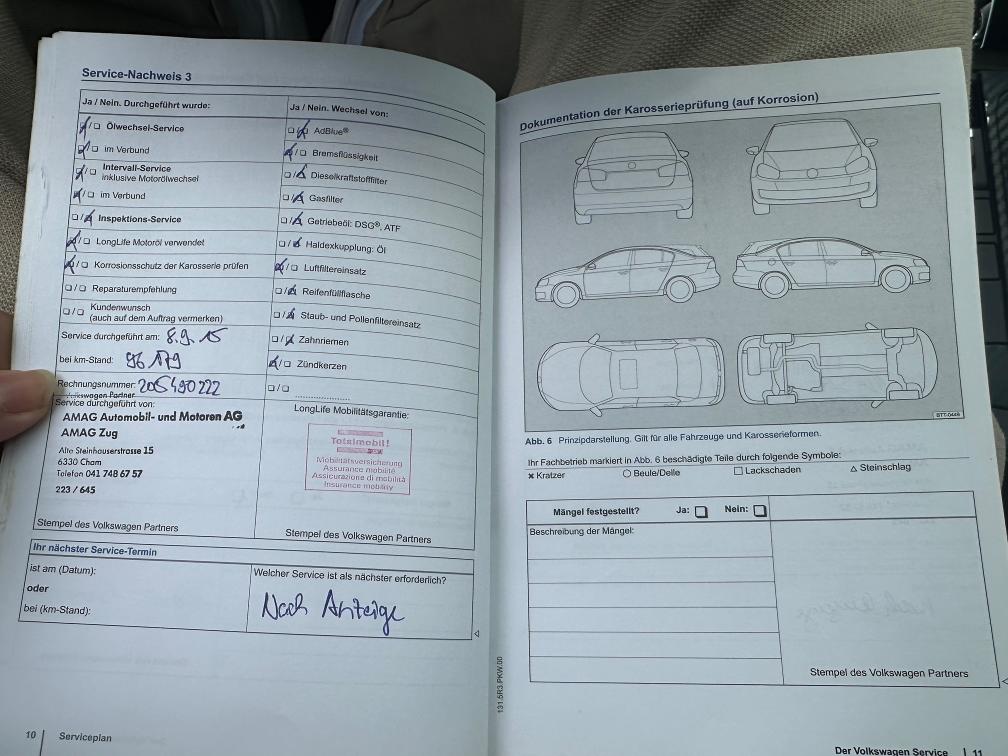 Service-Nachweis 3
Ja / Nein. Durchgeführt wurde:
Ölwechsel-Service
im Verbund
Intervall-Service
inklusive Motorölwechsel
im Verbund
Inspektions-Service
LongLife Motoröl verwendet
Korrosionsschutz der Karosserie prüfen
Reparaturempfehlung
Kundenwunsch
(auch auf dem Auftrag vermerken)
Service durchgeführt am: 8.9.15
bei km-Stand: 96 179
Rechnungsnummer: 205490222
Volkswagen Partner
Service durchgeführt von:
AMAG Automobil- und Motoren AG
AMAG Zug
Alte Steinhauserstrasse 15
6330 Cham
Telefon 041 748 67 57
223 / 645
Stempel des Volkswagen Partners
Ja / Nein. Wechsel von:
AdBlue®
Bremsflüssigkeit
Dieselkraftstofffilter
Gasfilter
Getriebeöl: DSG®, ATF
Haldexkupplung: Öl
Luftfiltereinsatz
Reifenfüllflasche
Staub- und Pollenfiltereinsatz
Zahnriemen
Zündkerzen
LongLife Mobilitätsgarantie:
Totalmobil!
Mobilitätsversicherung
Assurance mobilité
Assicurazione di mobilità
Insurance mobility
Stempel des Volkswagen Partners
Ihr nächster Service-Termin
ist am (Datum):
oder
bei (km-Stand):
Welcher Service ist als nächster erforderlich?
Nach Anzeige
10 Serviceplan
Dokumentation der Karosserieprüfung (auf Korrosion)
BTT-0449
Abb. 6 Prinzipdarstellung. Gilt für alle Fahrzeuge und Karosserieformen.
Ihr Fachbetrieb markiert in Abb. 6 beschädigte Teile durch folgende Symbole:
× Kratzer ○ Beule/Delle □ Lackschaden △ Steinschlag
Mängel festgestellt? Ja: Nein:
Beschreibung der Mängel:
Stempel des Volkswagen Partners
131.5R3.PKW.00
Der Volkswagen Service 11